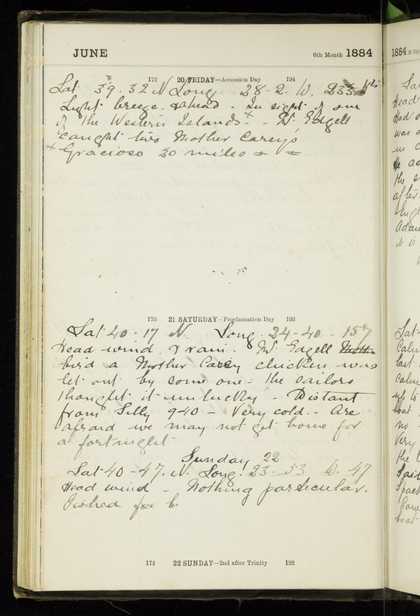 JUNE 6th Month 1884
172 20 FRIDAY—Accession Day 194
Lat. 39.32 N Long. 28-2. W.
Light breeze ahead. In sight of one
of the Western Islands. - Mr Edgell
caught two Mother Carey's
+ Gracioso 30 miles
173 21 SATURDAY—Proclamation Day 193
Lat 40-17 N. Long. 24-40- 157
Head wind & rain. Mr Edgell
bird a Mother Carey chicken was
let out by some one - the sailors
thought it unlucky - Distant
from Scilly 940 - Very cold. Are
afraid we may not get home for
a fortnight
Sunday 22
Lat 40-47. N. Long. 23-53. D. 47
Head wind - Nothing particular.
Fished for
174 22 SUNDAY—2nd after Trinity 192
1884